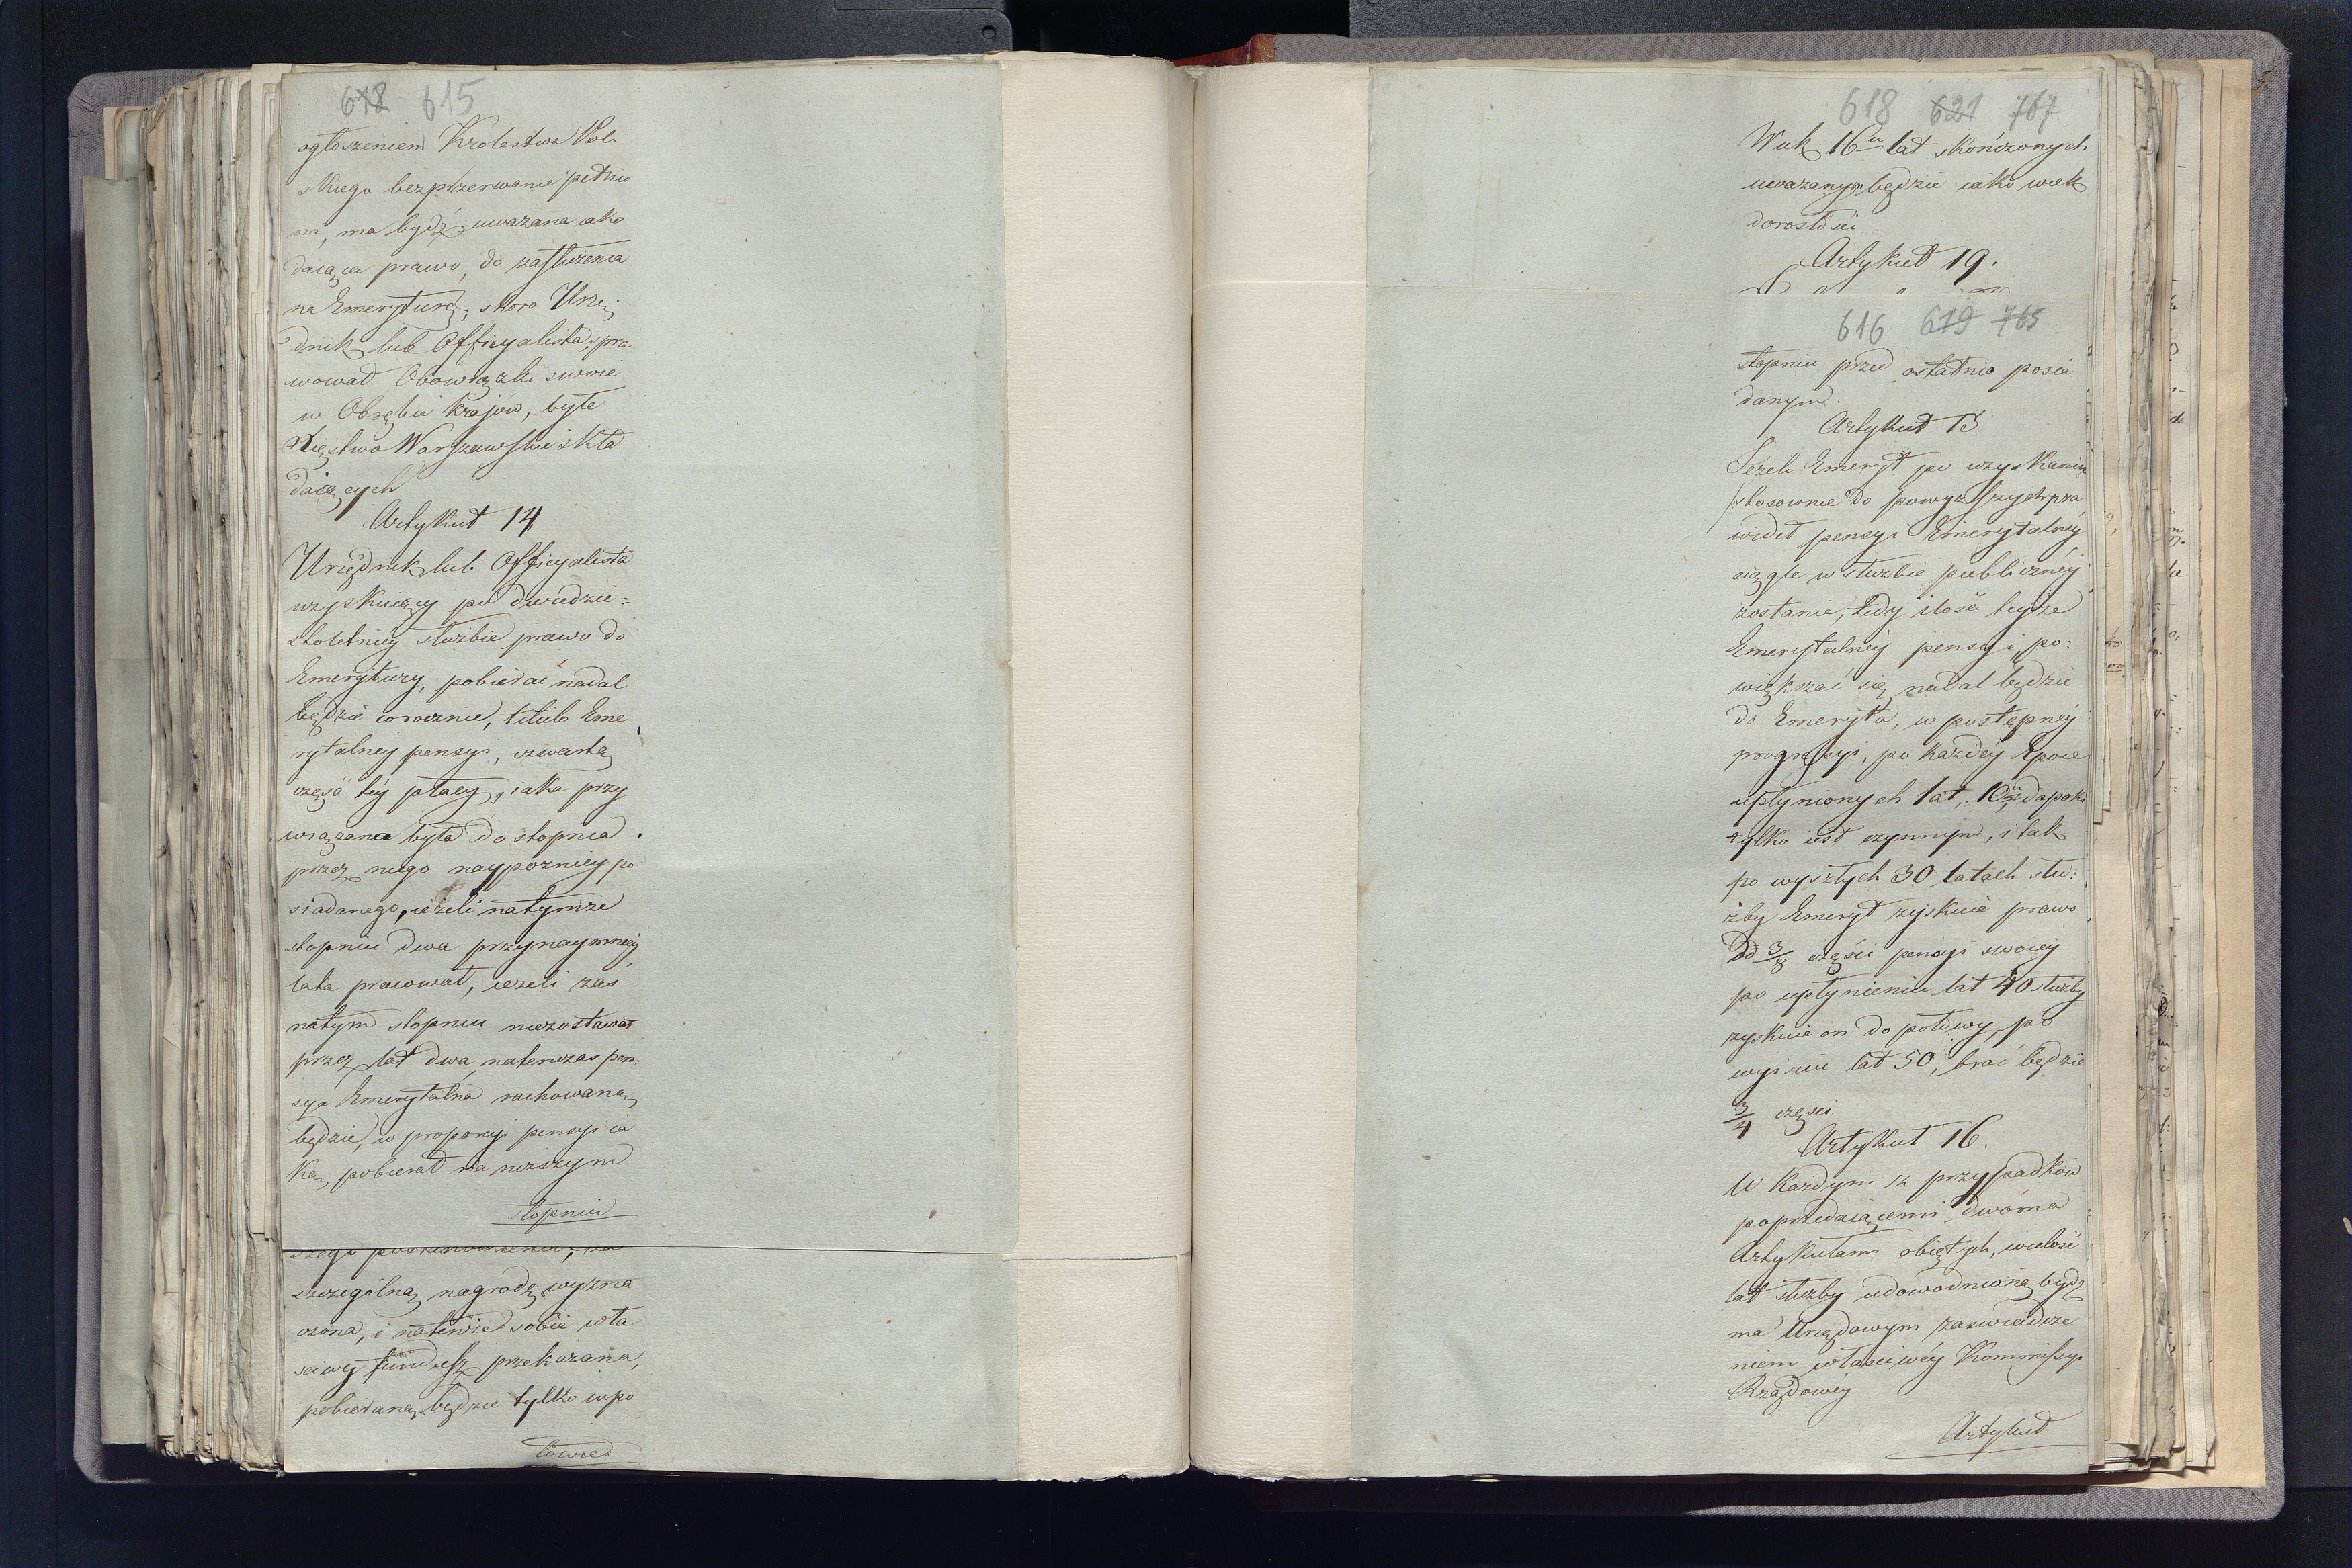 618 615
ogłoszeniem Krolestwa Pol
skiego bezprzerwanie pełnio
na, ma bydź uważana iako
daiąca prawo, do zasłużenia
na Emeryturę; skoro Urzę
dnik lub Officyalista, spra
wował Obowiązki swoie
w Obrębie Krajów, byłe
Xięstwo Warszawskie skła
daiących
Artykuł 14
Urzędnik lub Officyalista
uzyskuiący po dwudzie=
stoletniey służbie prawo do
Emerytury, pobierać nadal
będzie corocznie, titulo Eme
rytalney pensyi, czwartą
część tey płacy, iaka przy
wiązana była do stopnia
przez niego naypozniey po
siadanego, ieżeli natymże
stopniu dwa przynaymniey
lata pracował, ieżeli zaś
natym stopniu niezostawał
przez lat dwa, natenczas pen:
sya Emerytalna rachowaną
będzie, w proporcyi pensyi ia
ką pobierał na niższym
stopniu
szego postanowienia, za
szczególną nagrodę wyzna
czona, i natenże sobie wła
sciwy fundusz przekazana,
pobieraną będzie tylko wpo
łowie
618 621 767
Wiek 16tu lat skończonych
uważanym będzie iako wiek
dorosłości
Artykuł 19.
616 619 765
stopniu przed ostatnio posia
danym.
Artykuł 15
Jeżeli Emeryt po uzyskaniu
stosownie do powyższych pra
wideł pensyi Emerytalney
ciągle w służbie publiczney
zostanie, tedy ilość teyże
Emerytalney pensyi, po:
większać się nadal będzie
do Emeryta, w postępney
progressyi, po każdey Epoce
upłynionych lat, 10ciu dopóki
tylko iest czynnym, i tak
po wyszłych 30 latach słu:
żby Emeryt zyskuie prawo
do 3/8 części pensyi swoiey
po upłynieniu lat 40 służby
zyskuie on do połowy, po
wyiściu lat 50, brać będzie
3/4 części.
Artykuł 16.
W każdym z przypadków
poprzedzaiącemi dwóma
Artykułami obiętych, wielość
lat służby udowodnioną bydź
ma Urzędowym zaświadcze
niem właściwey Kommissyi
Rządowey
Artykuł